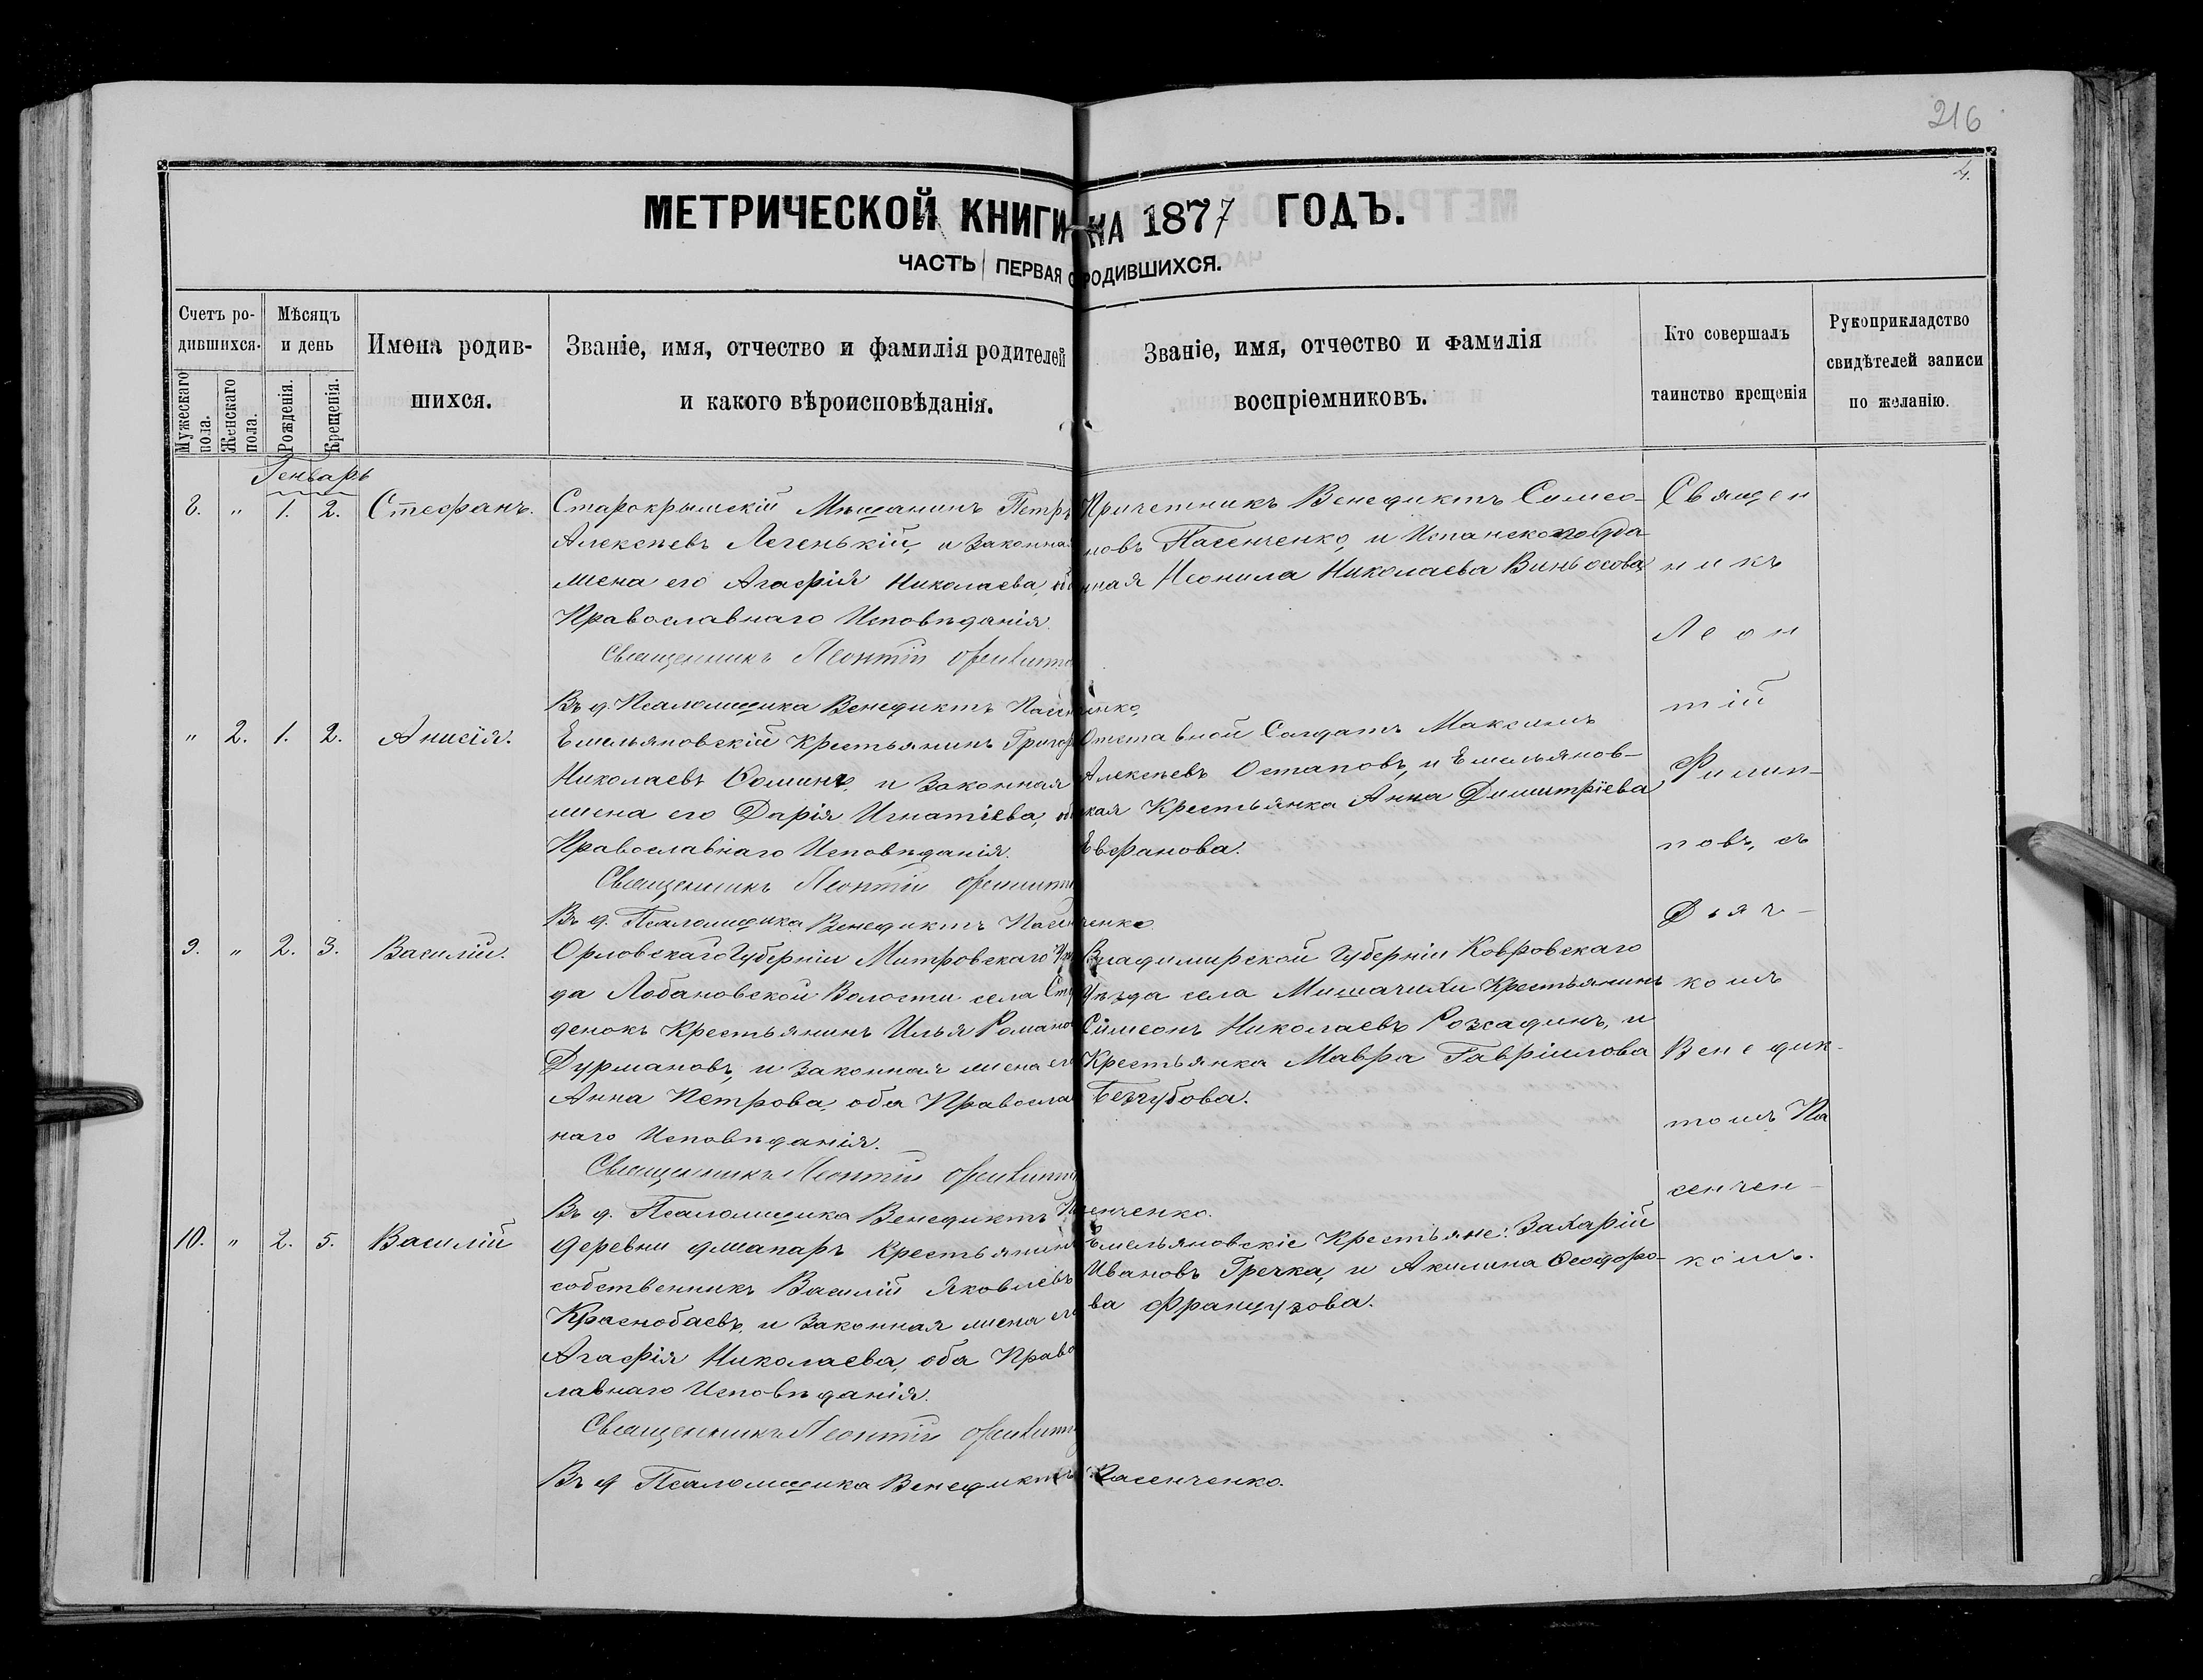 216
4.
МЕТРИЧЕСКОЙ КНИГИ НА 1877 ГОДЪ.
ЧАСТЬ ПЕРВАЯ О РОДИВШИХСЯ.
Счетъ ро-
дившихся.
Мужескаго
пола.
Женскаго
пола.
Мѣсяцъ
и день
Рожденія.
Крещенія.
Имена родив-
шихся.
Званіе, имя, отчество и фамилія родителей
и какого вѣроисповѣданія.
Званіе, имя, отчество и фамилія
воспріемниковъ.
Кто совершалъ
таинство крещенія
Рукоприкладство
свидѣтелей записи
по желанію.
Генварь
8. " 1. 2. Стефанъ.
Старокрымскій Мѣщанинъ Петръ
Алексѣевъ Легенькій, и законная
жена его Агафія Николаева, оба
Православнаго Исповѣданія.
Священникъ Леонтій
Въ д. Псаломщика Венедиктъ Пасенченко,
Причетникъ Венедиктъ Симео-
новъ Пасенченко, и Испанскоподда
нная Неонила Николаева
" 2. 1. 2. Анисія.
Емельяновскій Крестьянинъ Григор
Николаевъ Ѳоминъ, и законная
жена его Дарія Игнатіева, оба
Православнаго Исповѣданія.
Священникъ Леонтій
Въ д. Псаломщика Венедиктъ Пасенченко
Отставной Солдатъ Максимъ
Алексѣевъ Остаповъ, и Емельянов-
ская Крестьянка Анна Димитріева
Евфанова.
9. " 2. 3. Василій.
Орловскаго Губерніи Митровскаго Уѣз
да Лобановской Волости села Сту
денокъ Крестьянинъ Илья Романо
Дурмановъ, и законная жена его
Анна Петрова, оба Правосла
наго Исповѣданія.
Священникъ Леонтій
Въ д. Псаломщика Венедиктъ Пасенченко.
Владимирской Губерніи Ковровскаго
Уѣзда села Крестьянинъ
Симеонъ Николаевъ и
Крестьянка Мавра Гавріилова
Беззубова.
10. " 2. 5. Василій
Деревни Джапаръ Крестьянинъ
собственникъ Василій Яковлевъ
Краснобаевъ, и законная жена его
Агафія Николаева, оба Право
лавнаго Исповѣданія.
Священникъ Леонтій
Въ д Псаломщика Венедиктъ Пасенченко.
Емельяновскіе Крестьяне: Захарій
Ивановъ Гречка, и Акилина Ѳеодоро-
ва Французова.
Священ
никъ
Леон
тій
Филип-
повъ, съ
Дьяч-
комъ
Венедик-
томъ Па
сенчен-
комъ.